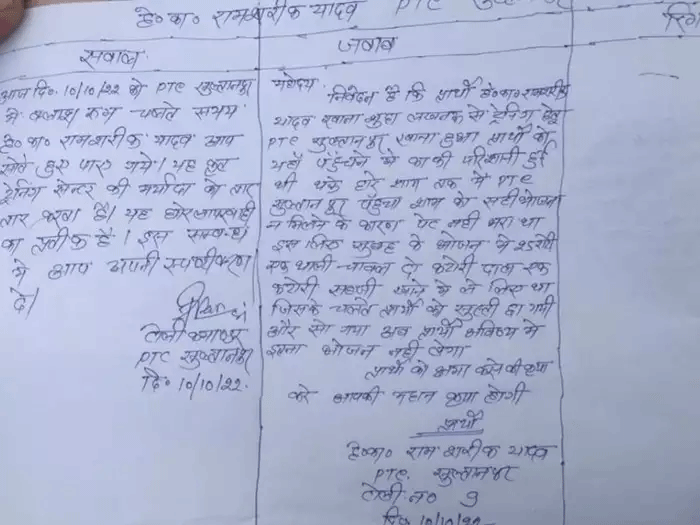 हे० का० रामशरीफ यादव PTC सुल्तानपुर
सवाल
जवाब
आज दि० 10/10/22 को PTC सुल्तानपुर
में क्लास रूम चलते समय
हे० का० रामशरीफ यादव आप
सोते हुए पाए गये। यह कृत
ट्रेनिंग सेन्टर की मर्यादा को तार
तार करता है। यह घोर लापरवाही
का प्रतीक है। इस सम्बन्ध
में आप अपनी स्पष्टीकरण
दे।
टोली कमाण्डर
PTC सुल्तानपुर
दि० 10/10/22.
महोदय
निवेदन है कि प्रार्थी हे० का० रामशरीफ
यादव रवाना शुदा लखनऊ से ट्रेनिंग हेतु
PTC सुल्तानपुर रवाना हुआ प्रार्थी को
यहाँ पहुँचने में काफी परेशानी हुई
थी थके हारे शाम तक में PTC
सुल्तानपुर पहुँचा शाम को सही भोजन
न मिलने के कारण पेट नहीं भरा था
इस लिए सुबह के भोजन में 25 रोटी
एक थाली चावल दो कटोरी दाल एक
कटोरी सब्जी खाने में ले लिए था
जिसके चलते प्रार्थी को सुस्ती छा गयी
और सो गया अब प्रार्थी भविष्य में
इतना भोजन नहीं लेगा
प्रार्थी को क्षमा करने की कृपा
करे आपकी महान कृपा होगी
प्रार्थी
हे० का० राम शरीफ यादव
PTC. सुल्तानपुर
टोली न० 9
दि० 10/10/22